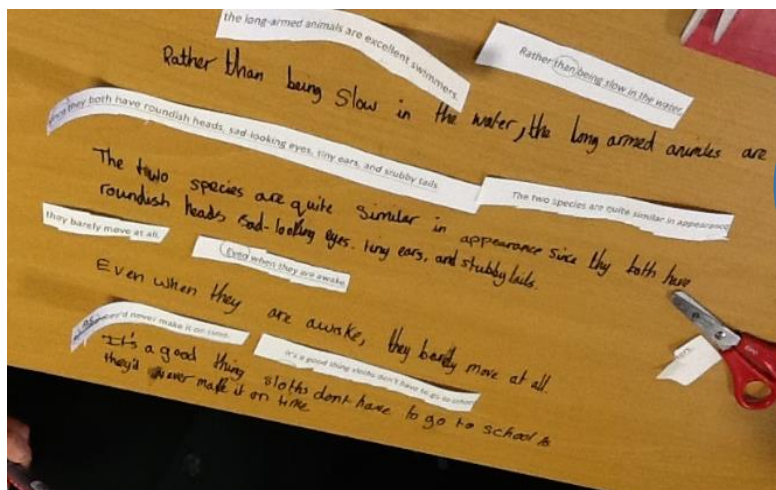 the long-armed animals are excellent swimmers.
Rather than being slow in the water
Rather than being slow in the water, the long armed animles are
since they both have roundish heads, sad-looking eyes, tiny ears, and stubby tails
The two species are quite similar in appearance
The two species are quite similar in appearance since thy both have
roundish heads sad-looking eyes. tiny ears, and stubby tails.
they barely move at all.
Even when they are awake
Even when they are awake, they barely move at all.
never make it on time.
It's a good thing sloths don't have to go to school
It's a good thing sloths dont have to go to school as
they'd never make it on time